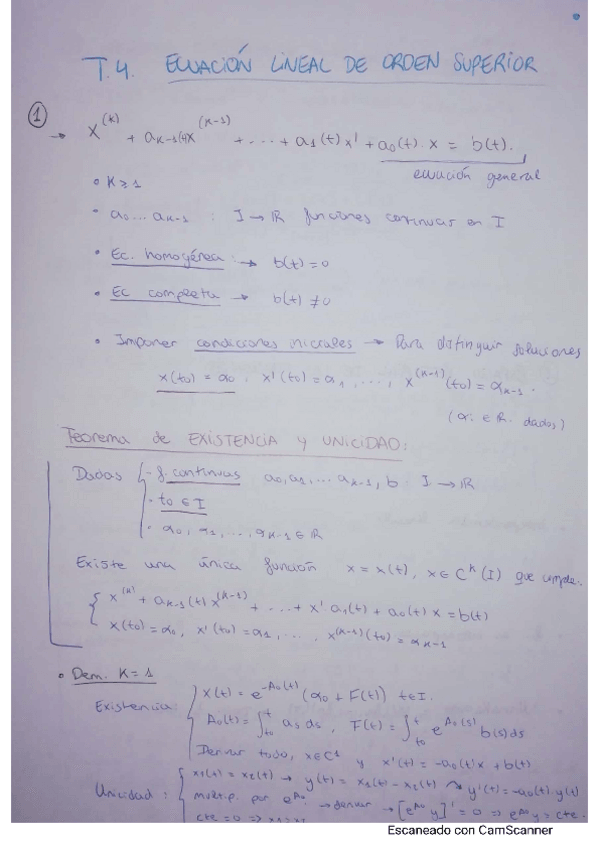 T.4. ECUACIÓN LINEAL DE ORDEN SUPERIOR
① → x^(k) + a_{k-1}(t)x^(k-1) + ... + a_1(t)x' + a_0(t)·x = b(t).
ecuación general
• K ≥ 1
• a_0 ... a_{k-1} : I → ℝ funciones continuas en I
• Ec. homogénea: → b(t) = 0
• Ec completa → b(t) ≠ 0
• Imponer condiciones iniciales → Para distinguir soluciones
x(t_0) = α_0, x'(t_0) = α_1, ..., x^(k-1)(t_0) = α_{k-1}.
(α_i ∈ ℝ. dados)
Teorema de EXISTENCIA y UNICIDAD:
Dadas { - f. continuas a_0, a_1, ... a_{k-1}, b : I → ℝ
· t_0 ∈ I
· α_0, α_1, ..., α_{k-1} ∈ ℝ
Existe una única función x = x(t), x ∈ C^k(I) que cumple.
{ x^(k) + a_{k-1}(t) x^(k-1) + ... + x' a_1(t) + a_0(t) x = b(t)
x(t_0) = α_0, x'(t_0) = α_1, ..., x^(k-1)(t_0) = α_{k-1}
• Dem. K = 1
Existencia: { x(t) = e^{-A_0(t)} (α_0 + F(t)) t ∈ I.
A_0(t) = ∫_{t_0}^t a_s ds, F(t) = ∫_{t_0}^t e^{A_0(s)} b(s) ds
Derivar todo, x ∈ C^1 y x'(t) = -a_0(t)x + b(t)
Unicidad: { x_1(t) = x_2(t) → y(t) = x_1(t) - x_2(t) ↝ y'(t) = -a_0(t)·y(t)
multip. por e^{A_0} → derivar → [e^{A_0} y]' = 0 ⇒ e^{A_0} y = cte.
cte = 0 ⇒ x_1 = x_2
Escaneado con CamScanner